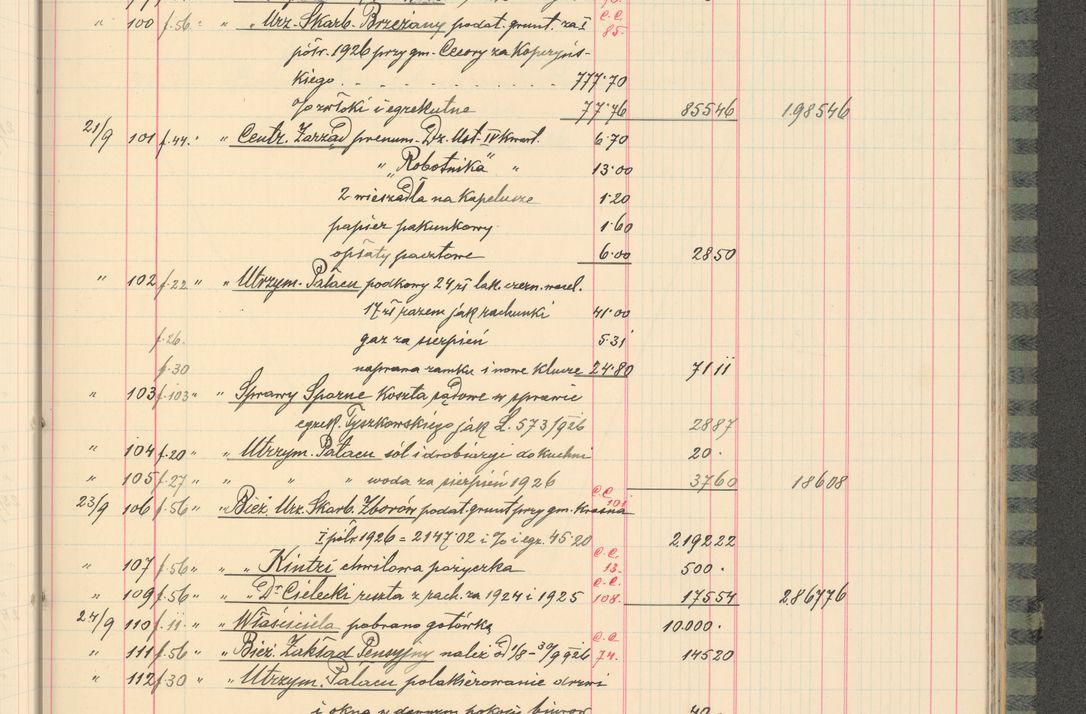 " 100 f.56 " " Urz. Skarb. Brzeżany podat. grunt. za I C.C. 85.
półr. 1926 przy gm. Cecory za Kopczyńs-
kiego . . . . . . . . . 777·70
% zwłoki i egzekutne 77·76 85546 198546
21/9 101 f.44 " " Centr. Zarząd prenum. Dz. Ust. IV kwart. 6·70
" "Robotnika" " 13·00
2 wieszadła na kapelusze 1·20
papier pakunkowy 1·60
opłaty pocztowe 6·00 2850
" 102 f.22 " " Utrzym. Pałacu podkowy 24 zł lak. czern.
17 zł razem jak rachunki 41·00
f.26. gaz za sierpień 5·31
f.30 naprawa zamku i nowe klucze 24·80 7111
" 103 f.103 " " Sprawy Sporne koszta sądowe w sprawie
egzek. Tyszkowskiego jak L. 573/926 2887
" 104 f.20 " " Utrzym. Pałacu sól i drobiazgi do kuchni 20·
" 105 f.27 " " " " woda za sierpień 1926 3760 18608
23/9 106 f.56 " " Bież. Urz. Skarb. Zborów podat. grunt przy gm. Krasna C.C. 101.
I półr. 1926 = 2147·02 i % i egz. 45·20 219222
" 107 f.56 " " " Kintzi chwilowa pożyczka C.C. 13. 500·
" 109 f.56 " " " Dr Cielecki reszta z rach. za 1924 i 1925 C.C. 108. 17554 286776
24/9 110 f.11 " " Właściciela pobrano gotówką 10.000·
" 111 f.56 " " Bież. Zakład Pensyjny należ. od 1/8 - 30/9 926 C.C. 74. 14520
" 112 f.30 " " Utrzym. Pałacu polakierowanie drzwi
i okna w dawnym pokoju biurow. 40